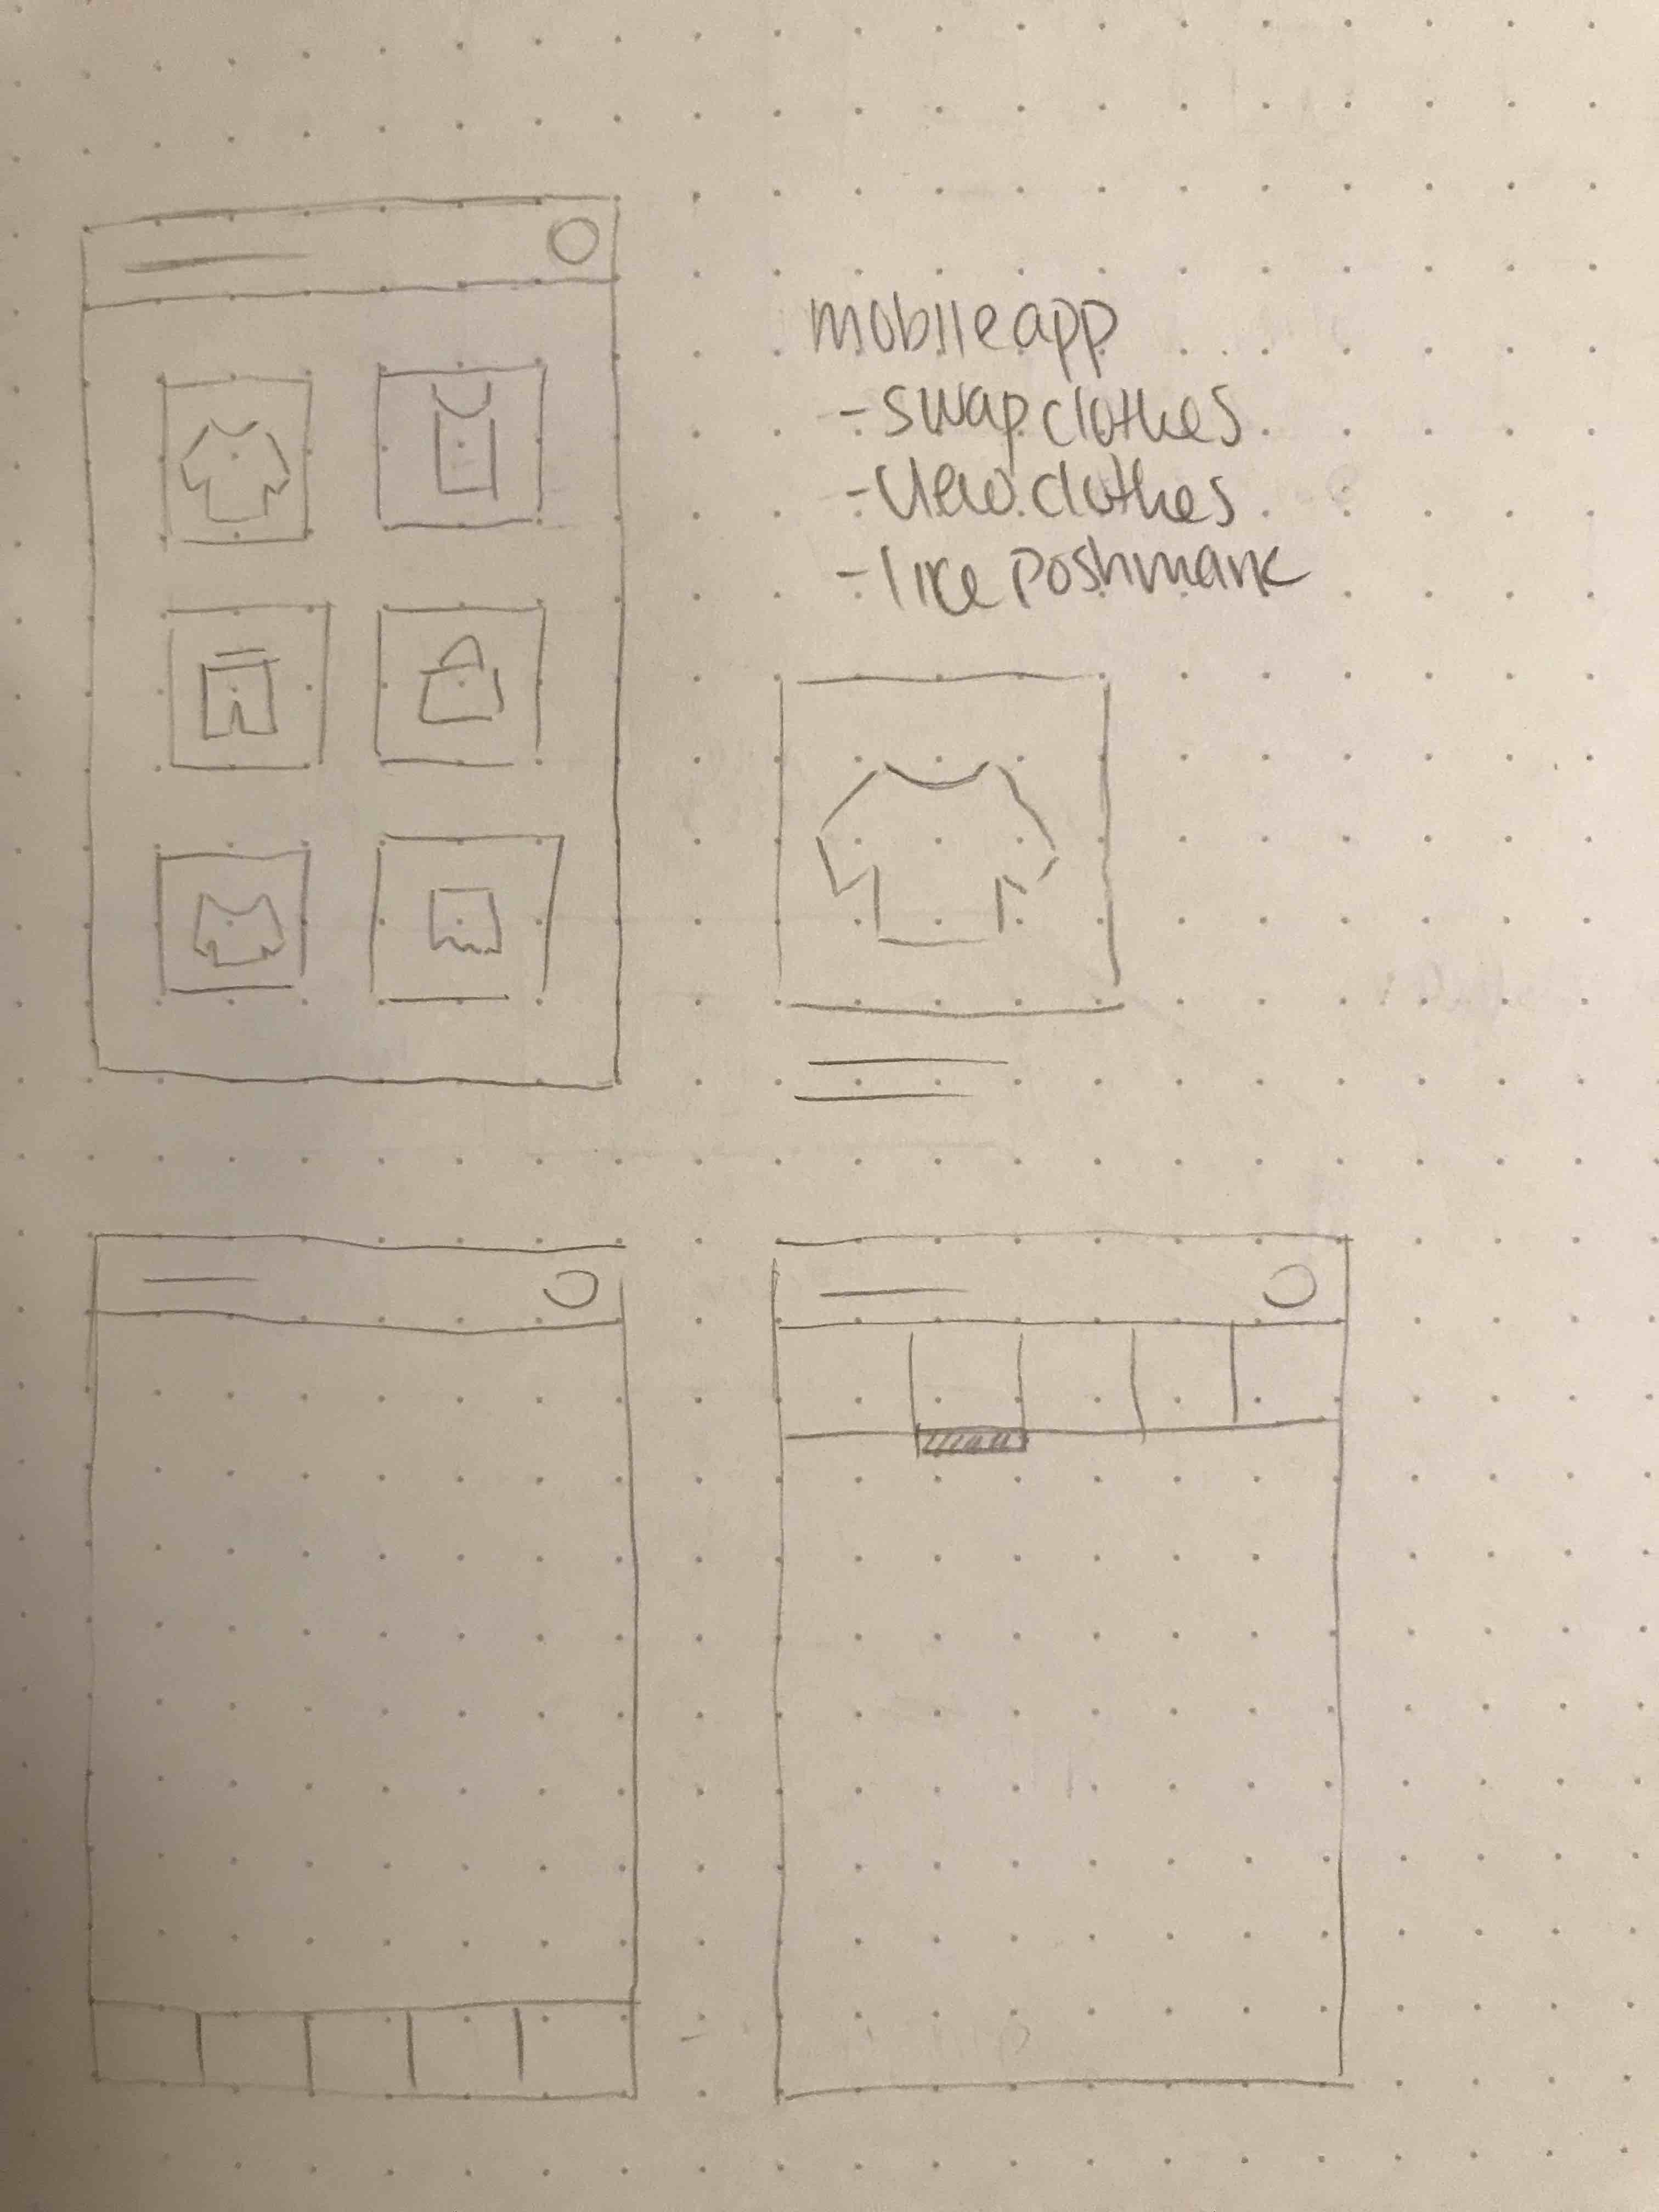 mobile app
- swap clothes
- view clothes
- like poshmark